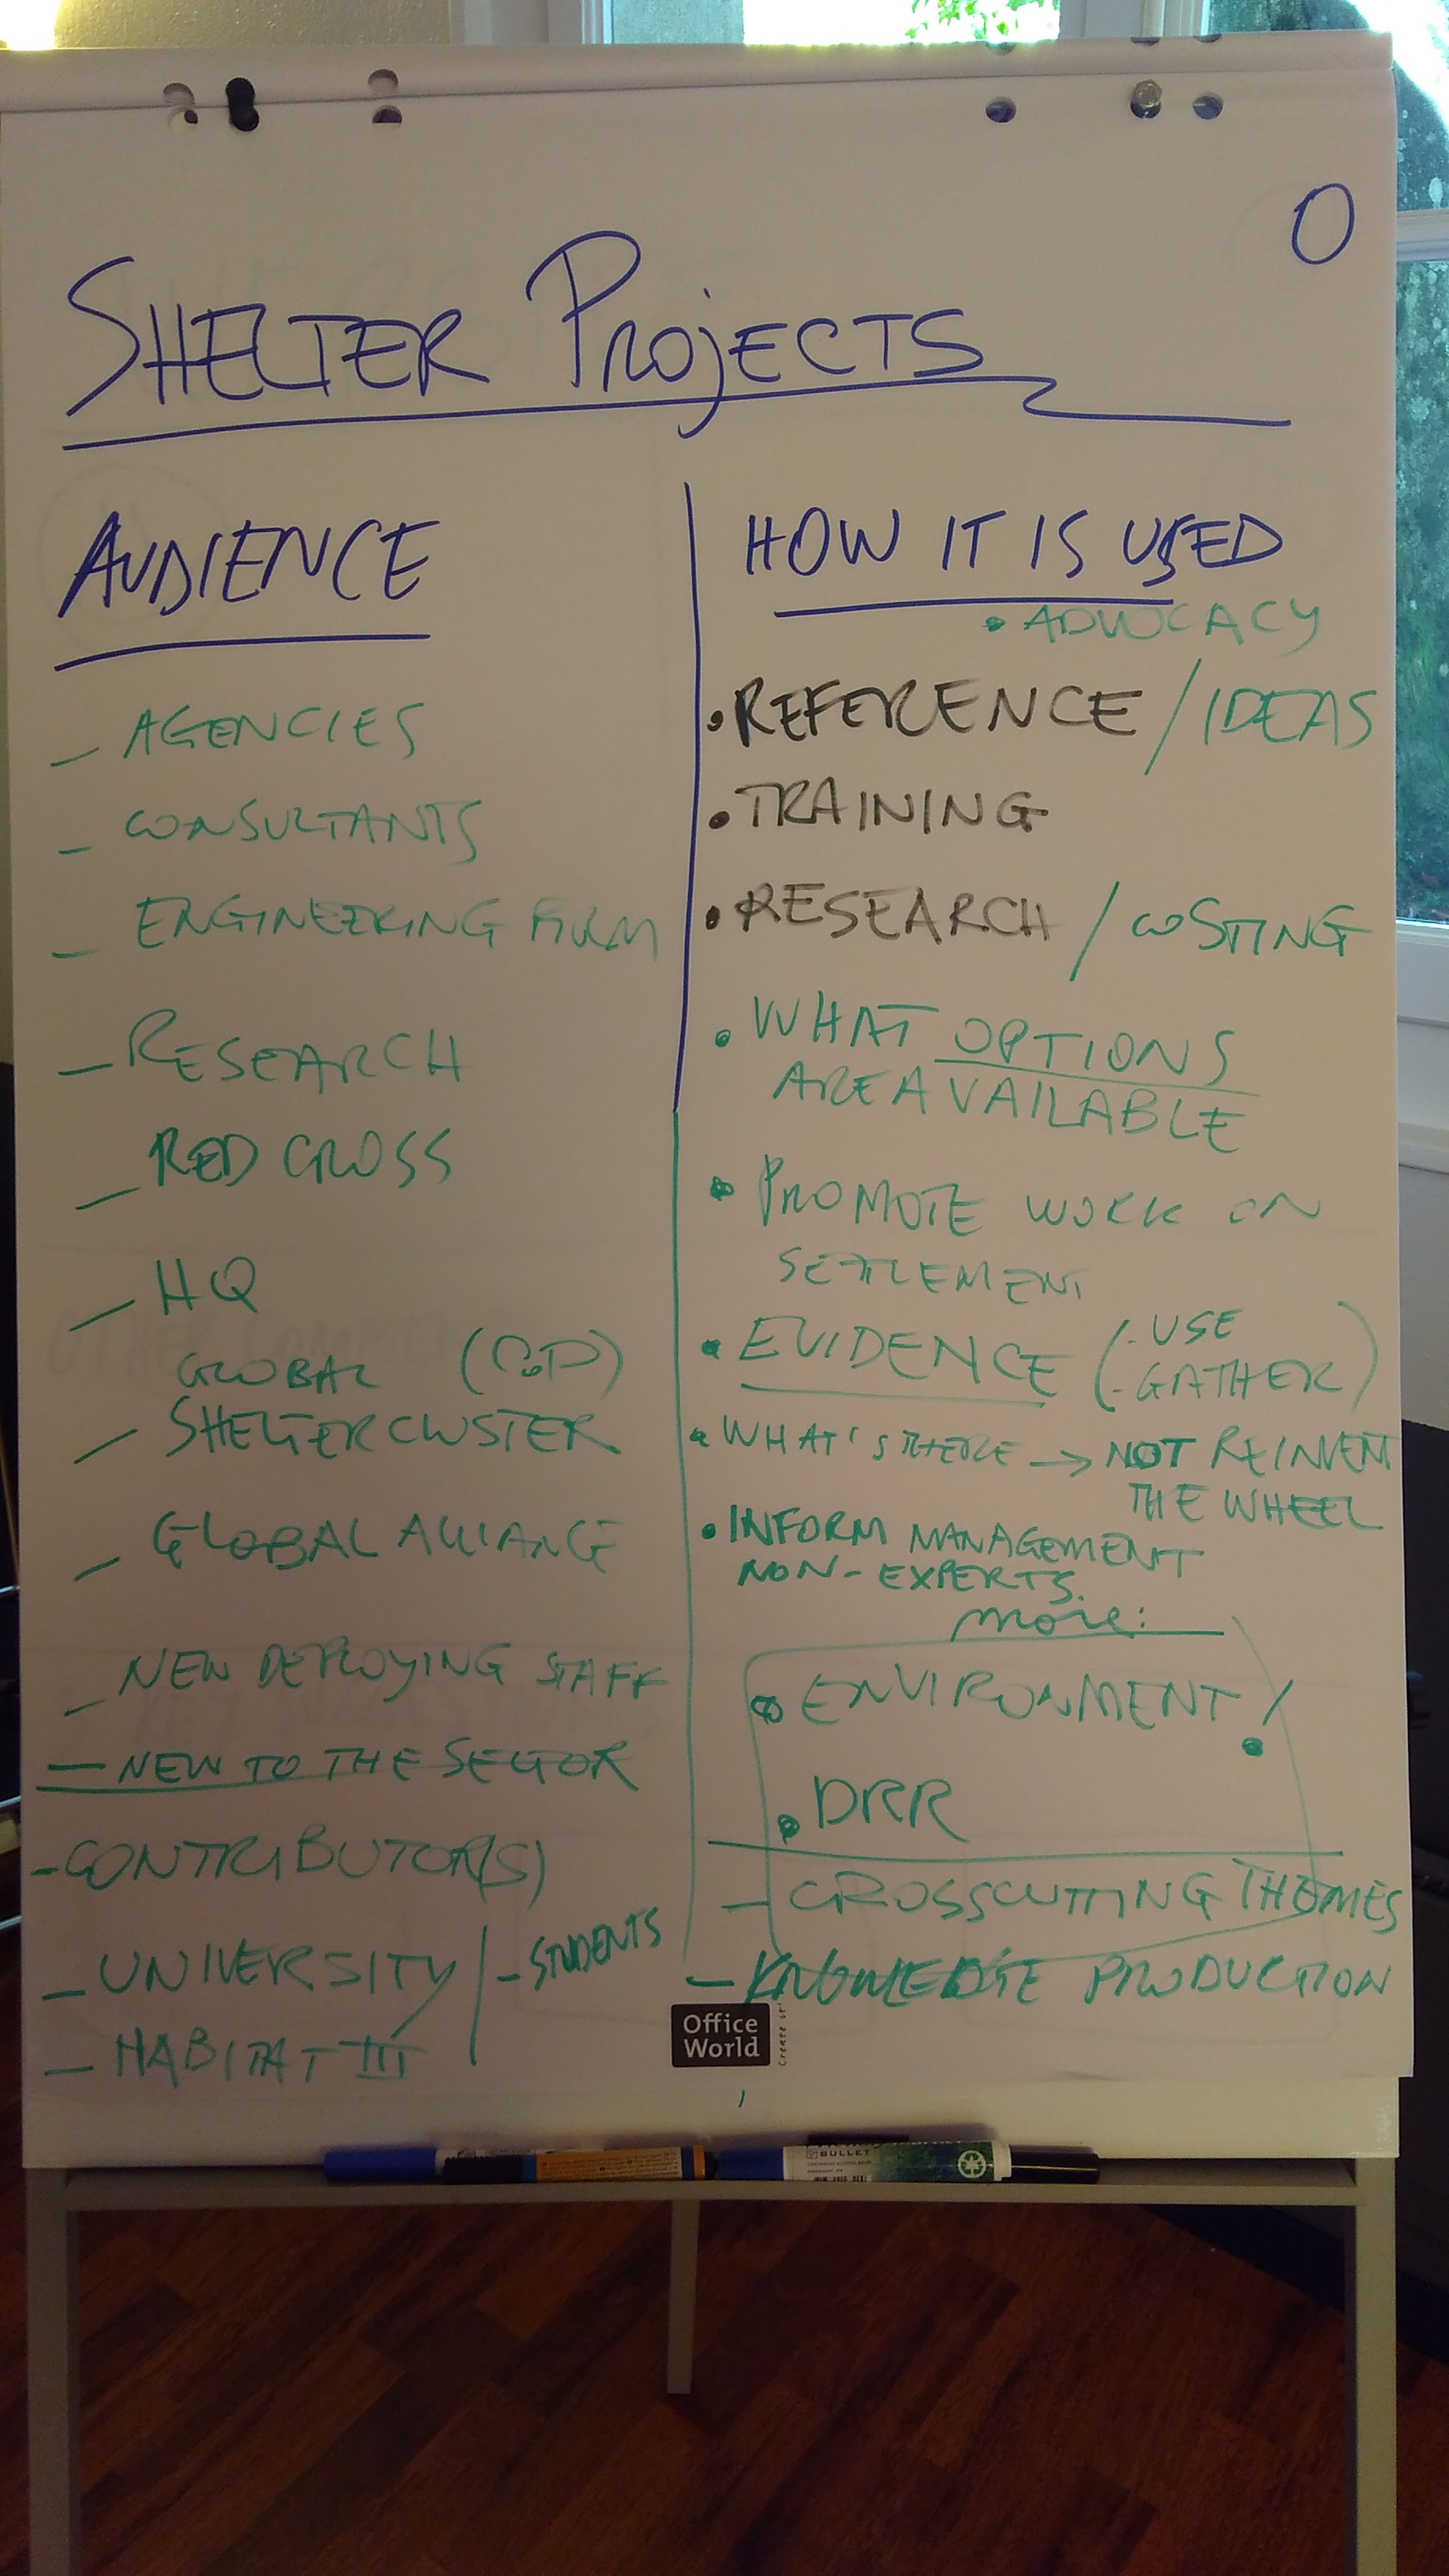 0
SHELTER PROJECTS
AUDIENCE
- AGENCIES
- CONSULTANTS
- ENGINEERING FIRM
- RESEARCH
- RED CROSS
- HQ
GLOBAL (CoP)
- SHELTER CLUSTER
- GLOBAL ALLIANCE
- NEW DEPLOYING STAFF
- NEW TO THE SECTOR
- CONTRIBUTOR(S)
- UNIVERSITY / - STUDENTS
- HABITAT III
HOW IT IS USED
• ADVOCACY
• REFERENCE / IDEAS
• TRAINING
• RESEARCH / COSTING
• WHAT OPTIONS
ARE AVAILABLE
• PROMOTE WORK ON
SETTLEMENT
• EVIDENCE (- USE
- GATHER)
• WHAT'S THERE → NOT REINVENT
THE WHEEL
• INFORM MANAGEMENT
NON-EXPERTS.
more:
• ENVIRONMENT /
• DRR
- CROSSCUTTING THEMES
- KNOWLEDGE PRODUCTION
Office
World
Create it!
BULLET